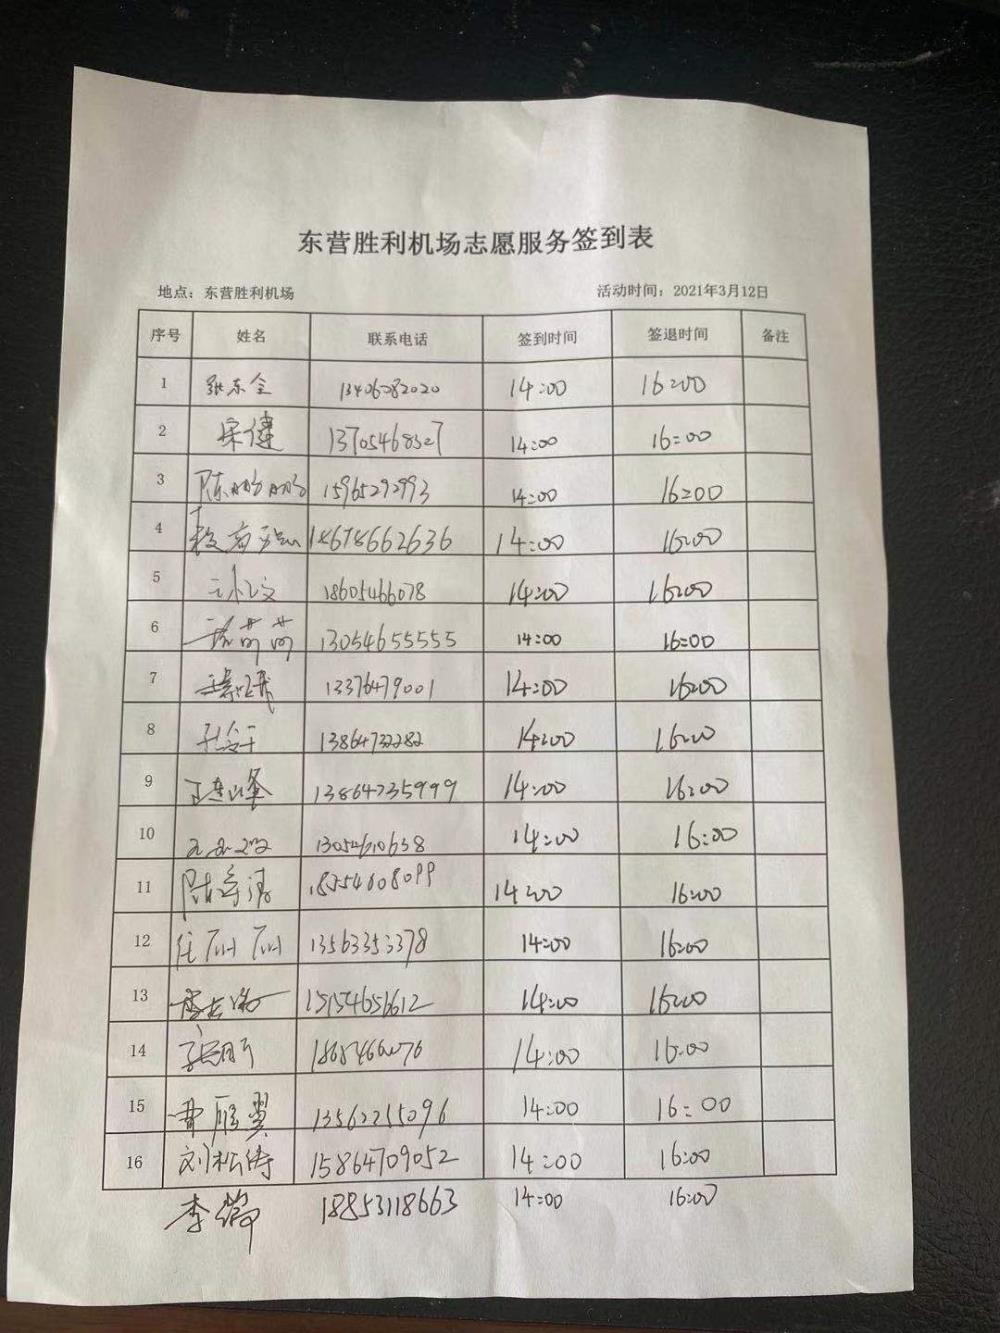 东营胜利机场志愿服务签到表
地点：东营胜利机场 活动时间：2021年3月12日
序号 姓名 联系电话 签到时间 签退时间 备注
1 张东全 13406082020 14:00 16:00
2 宋健 13705468327 14:00 16:00
3 陈鹏鹏 15965292993 14:00 16:00
4 18678662636 14:00 16:00
5 18605466078 14:00 16:00
6 13054655555 14:00 16:00
7 13376479001 14:00 16:00
8 13864732282 14:00 16:00
9 13864735999 14:00 16:00
10 14:00 16:00
11 18254608099 14:00 16:00
12 任丽丽 13563353378 14:00 16:00
13 15154656612 14:00 16:00
14 14:00 16:00
15 13562255096 14:00 16:00
16 刘松涛 15864709052 14:00 16:00
李瑞 18853118663 14:00 16:00